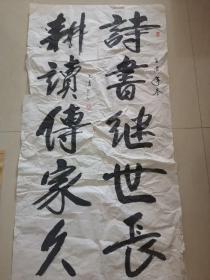 詩書继世長
耕讀傳家久